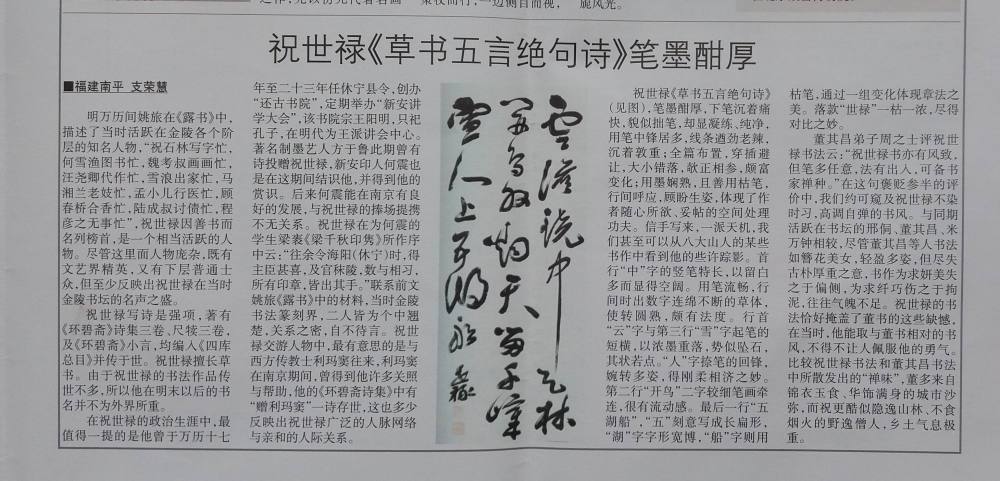 祝世禄《草书五言绝句诗》笔墨酣厚
■福建南平 支荣慧
明万历间姚旅在《露书》中,
描述了当时活跃在金陵各个阶
层的知名人物,“祝石林写字忙,
何雪渔图书忙,魏考叔画画忙,
汪尧卿代作忙,雪浪出家忙,马
湘兰老妓忙,孟小儿行医忙,顾
春桥合香忙,陆成叔讨债忙,程
彦之无事忙”,祝世禄因善书而
名列榜首,是一个相当活跃的人
物。尽管这里面人物庞杂,既有
文艺界精英,又有下层普通士
众,但至少反映出祝世禄在当时
金陵书坛的名声之盛。
祝世禄写诗是强项,著有
《环碧斋》诗集三卷、尺牍三卷,
及《环碧斋》小言,均编入《四库
总目》并传于世。祝世禄擅长草
书。由于祝世禄的书法作品传
世不多,所以他在明末以后的书
名并不为外界所重。
在祝世禄的政治生涯中,最
值得一提的是他曾于万历十七
年至二十三年任休宁县令,创办
“还古书院”,定期举办“新安讲
学大会”,该书院宗王阳明,只祀
孔子,在明代为王派讲会中心。
著名制墨艺人方于鲁此期曾有
诗投赠祝世禄,新安印人何震也
是在这期间结识他,并得到他的
赏识。后来何震能在南京有良
好的发展,与祝世禄的捧场提携
不无关系。祝世禄在为何震的
学生梁袠《梁千秋印隽》所作序
中云;“往余令海阳(休宁)时,得
主臣甚喜,及官秣陵,数与相习,
所有印章,皆出其手。”联系前文
姚旅《露书》中的材料,当时金陵
书法篆刻界,二人皆为个中翘
楚,关系之密,自不待言。祝世
禄交游人物中,最有意思的是与
西方传教士利玛窦往来,利玛窦
在南京期间,曾得到他许多关照
与帮助,他的《环碧斋诗集》中有
“赠利玛窦”一诗存世,这也多少
反映出祝世禄广泛的人脉网络
与亲和的人际关系。
祝世禄《草书五言绝句诗》
(见图),笔墨酣厚,下笔沉着痛
快,貌似拙笔,却显凝练、纯净,
用笔中锋居多,线条遒劲老辣,
沉着敦重;全篇布置,穿插避
让,大小错落,欹正相参,颇富
变化;用墨娴熟,且善用枯笔,
行间呼应,顾盼生姿,体现了作
者随心所欲、妥帖的空间处理
功夫。信手写来,一派天机,我
们甚至可以从八大山人的某些
书作中看到他的些许踪影。首
行“中”字的竖笔特长,以留白
多而显得空阔。用笔流畅,行
间时出数字连绵不断的草体,
使转圆熟,颇有法度。行首
“云”字与第三行“雪”字起笔的
短横,以浓墨重落,势似坠石,
其状若点。“人”字捺笔的回锋,
婉转多姿,得刚柔相济之妙。
第二行“开鸟”二字较细笔画牵
连,很有流动感。最后一行“五
湖船”,“五”刻意写成长扁形,
“湖”字字形宽博,“船”字则用
枯笔,通过一组变化体现章法之
美。落款“世禄”一枯一浓,尽得
对比之妙。
董其昌弟子周之士评祝世
禄书法云;“祝世禄书亦有风致,
但笔多任意,法有出入,可备书
家禅种。”在这句褒贬参半的评
价中,我们约可窥及祝世禄不染
时习,高调自弹的书风。与同期
活跃在书坛的邢侗、董其昌、米
万钟相较,尽管董其昌等人书法
如簪花美女,轻盈多姿,但尽失
古朴厚重之意,书作为求妍美失
之于偏侧,为求纤巧伤之于拘
泥,往往气魄不足。祝世禄的书
法恰好掩盖了董书的这些缺憾,
在当时,他能取与董书相对的书
风,不得不让人佩服他的勇气。
比较祝世禄书法和董其昌书法
中所散发出的“禅味”,董多来自
锦衣玉食、华饰满身的城市沙
弥,而祝更酷似隐逸山林、不食
烟火的野逸僧人,乡土气息极
重。